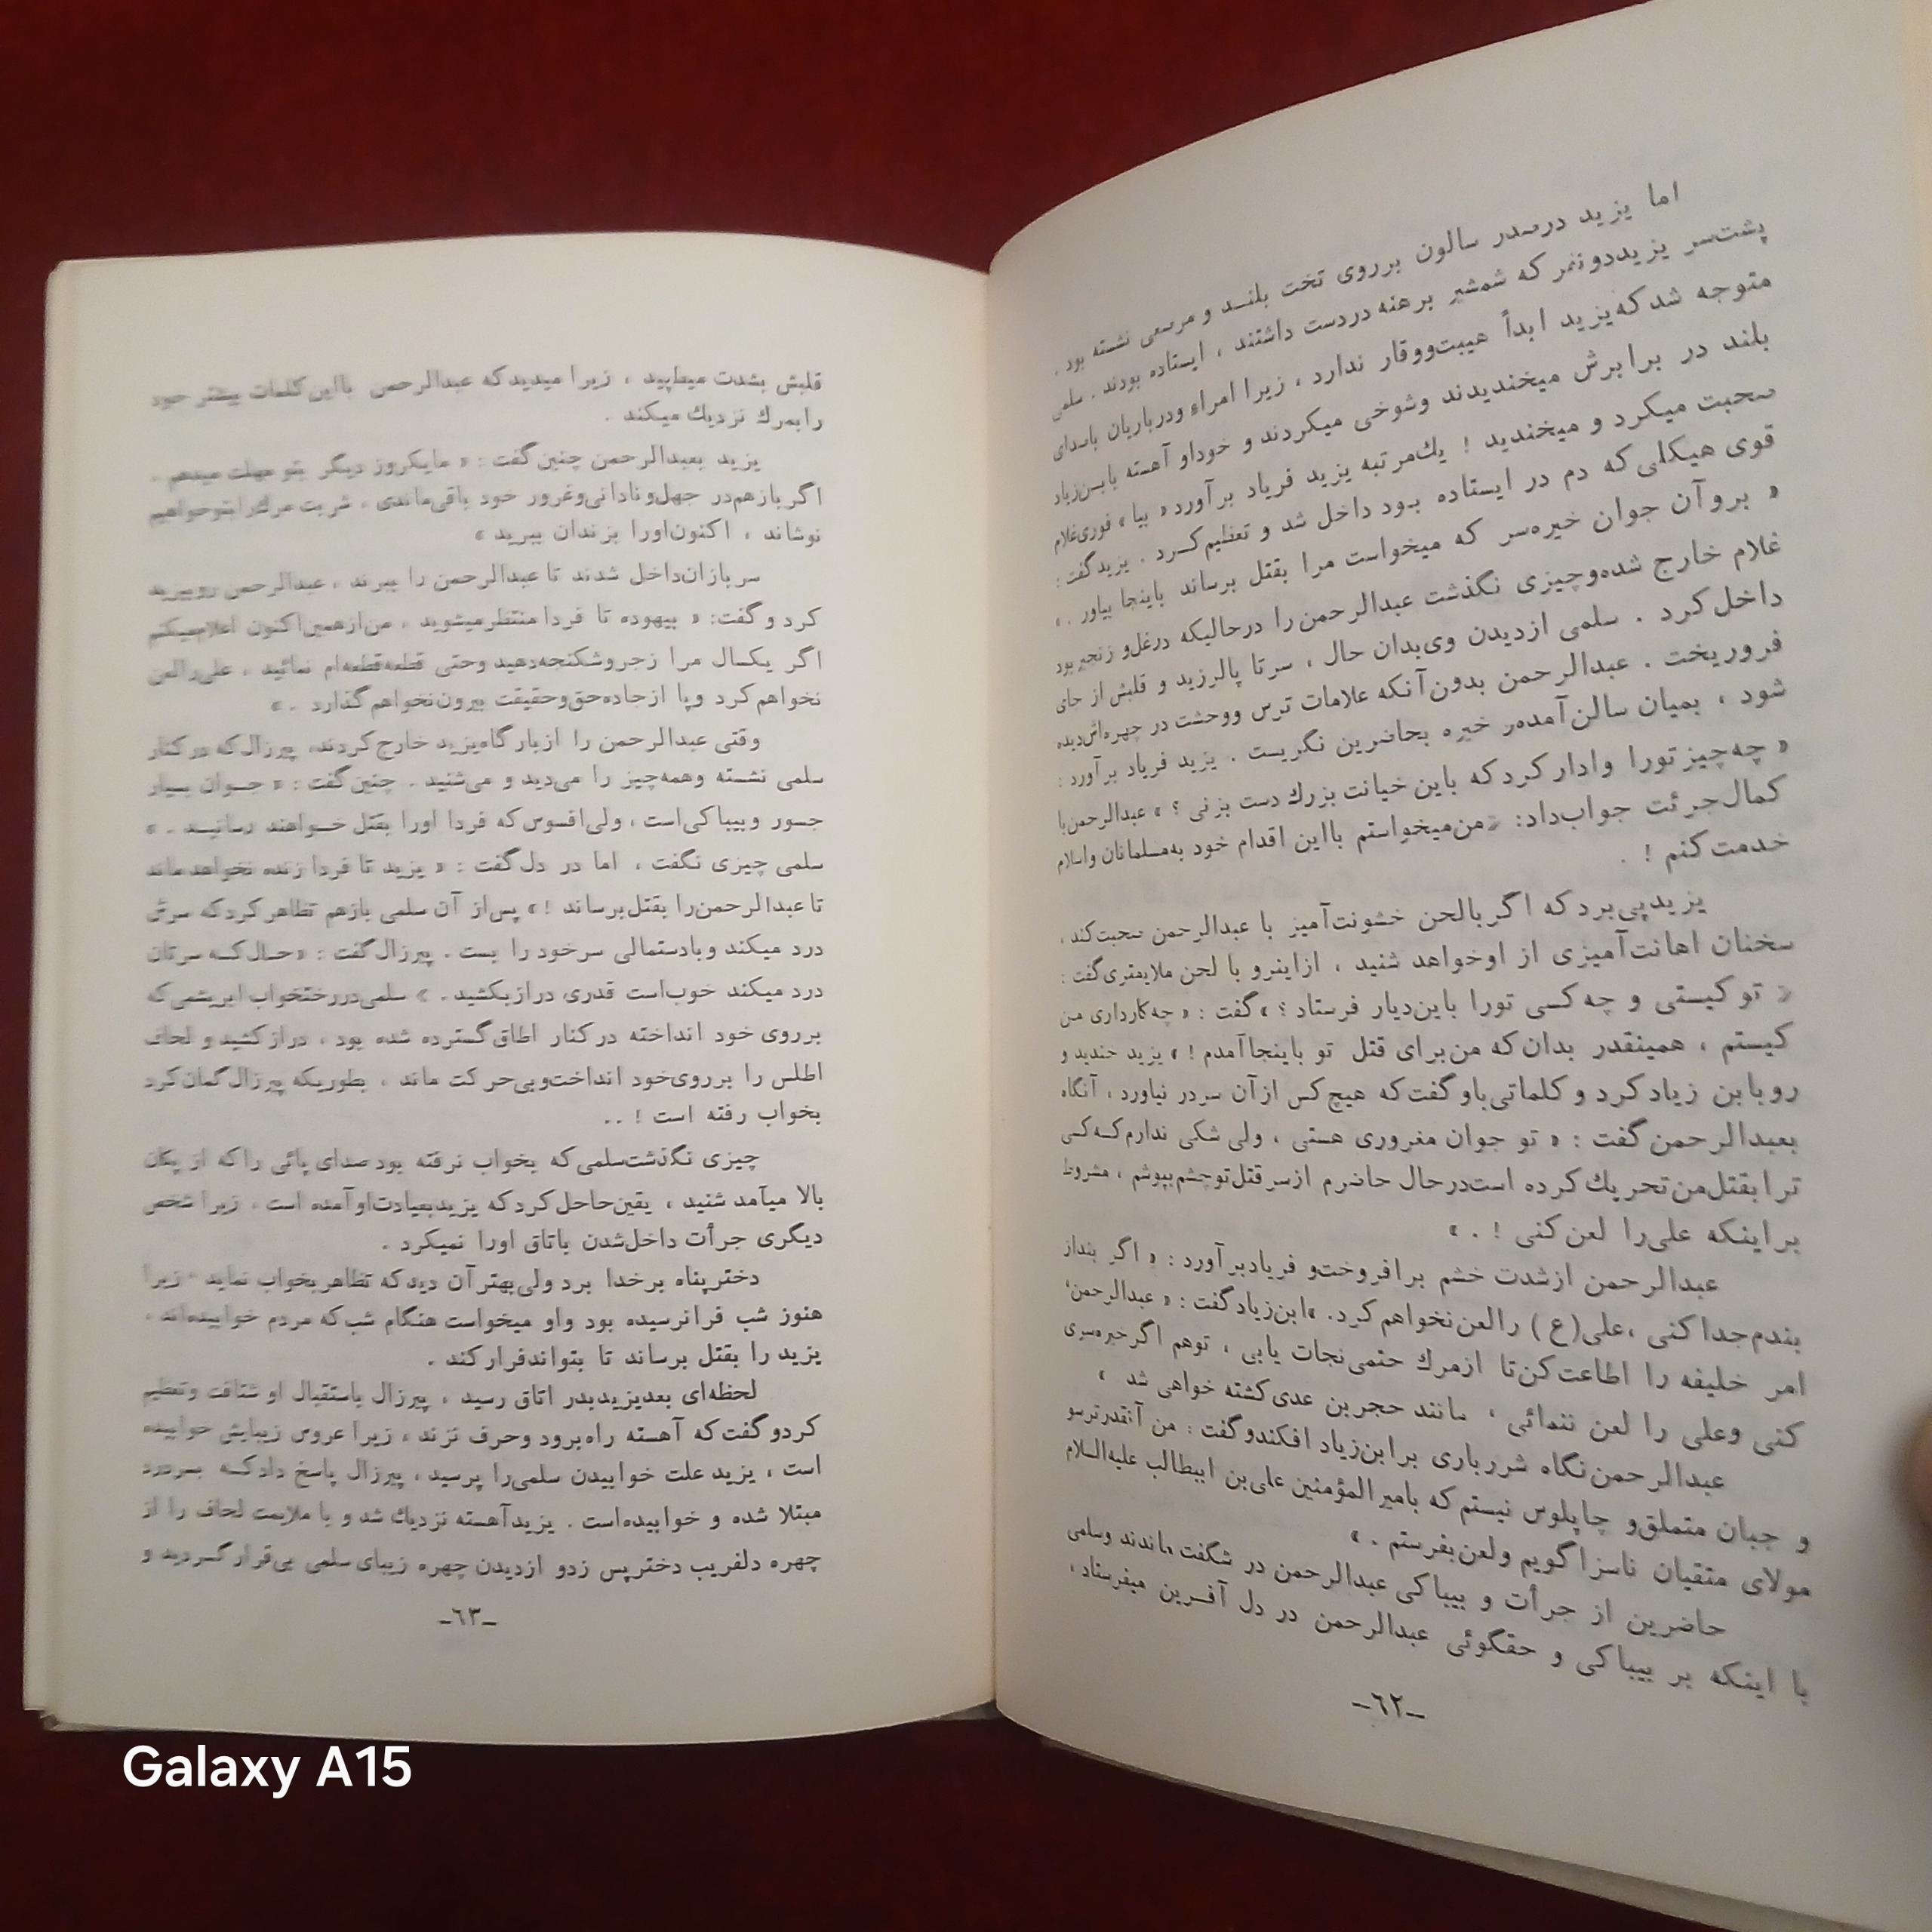 اما یزید درصدر سالون برروی تخت بلنـد و مرصعی نشسته بود .
پشت‌سر یزیددونفر که شمشیر برهنه دردست داشتند ، ایستاده بودند . سلمی
متوجه شدکه‌یزید ابداً هیبت‌ووقار ندارد ، زیرا امراء ودرباریان باصدای
بلند در برابرش میخندیدند وشوخی میکردند و خوداو آهسته بابـن‌زیاد
صحبت میکرد و میخندید ! یك‌مرتبه یزید فریاد برآورد « بیا » فوری‌غلام
قوی هیکلی‌که دم در ایستاده بـود داخل شد و تعظیم‌کـرد . یزیدگفت :
« بروآن جوان خیره‌سر که میخواست مرا بقتل برساند باینجا بیاور . »
غلام خارج شده‌وچیزی نگذشت عبدالرحمن‌را درحالیکه درغل‌و زنجیر بود
داخل‌کرد . سلمی ازدیدن وی‌بدان حال ، سرتا پالرزید و قلبش از جای
فروریخت . عبدالرحمن بدون‌آنکه علامات ترس ووحشت در چهره‌اش‌دیده
شود ، بمیان سالن‌آمده‌و خیره بحاضرین نگریست . یزید فریاد برآورد :
« چه‌چیزتورا وادارکردکه باین خیانت بزرك دست بزنی ؟ » عبدالرحمن‌با
کمال‌جرئت جواب‌داد: «من‌میخواستم بااین اقدام خود به‌مسلمانان‌واسلام
خدمت‌کنم ! .
یزیدپی‌بردکه اگربالحن خشونت‌آمیز با عبدالرحمن صحبت‌کند ،
سخنان اهانت‌آمیزی از اوخواهد شنید ، ازاینرو با لحن ملایمتری‌گفت :
« توکیستی و چه‌کسی تورا باین‌دیار فرستاد ؟ »گفت : « چه‌کارداری من
کیستم ، همینقدر بدان‌که من‌برای قتل تو باینجاآمدم ! » یزید خندید و
روبابن زیادکرد وکلماتی‌باوگفت‌که هیچ‌کس ازآن سردر نیاورد ، آنگاه
بعبدالرحمن‌گفت : « تو جوان مغروری هستی ، ولی شکی ندارم‌کـه‌کسی
ترابقتل‌من‌تحریك‌کرده است‌درحال حاضرم ازسرقتل‌توچشم‌بپوشم ، مشروط
براینکه علی‌را لعن‌کنی ! . »
عبدالرحمن ازشدت خشم برافروخت‌و فریادبرآورد : « اگر بنداز
بندم‌جداکنی ،علی(ع) رالعن‌نخواهم‌کرد. »ابن‌زیادگفت : « عبدالرحمن،
امر خلیفه را اطاعت‌کن‌تا ازمرك حتمی‌نجات یابی ، توهم اگرخیره‌سری
کنی وعلی را لعن ننمائی ، مانند حجربن عدی‌کشته خواهی شد »
عبدالرحمن‌نگاه شررباری برابن‌زیاد افکندوگفت : من آنقدرترسو
و جبان متملق‌و چاپلوس نیستم‌که بامیرالمؤمنین علی‌بن ابیطالب علیه‌السلام
مولای متقیان ناسزاگویم ولعن‌بفرستم . »
حاضرین از جرأت و بیباکی عبدالرحمن در شگفت ماندند وسلمی
با اینکه بر بیباکی و حقگوئی عبدالرحمن در دل آفـرین میفرستاد ،
-۶۲-
قلبش بشدت میطپید ، زیرا میدیدکه عبدالرحمن بااین‌کلمات بیشتر خود
رابمرك نزدیك میکند .
یزید بعبدالرحمن چنین‌گفت : « مایکروز دیگر بتو مهلت میدهم .
اگربازهم‌در جهل‌ونادانی‌وغرور خود باقی‌ماندی ، شربت مرك‌رابتوخواهیم
نوشاند ، اکنون‌اورا بزندان ببرید »
سربازان‌داخل شدند تا عبدالرحمن را ببرند ، عبدالرحمن روبیزید
کرد وگفت: « بیهوده تا فردا منتظرمیشوید ، من‌ازهمین‌اکنون اعلام‌میکنم
اگر یکسال مرا زجروشکنجه‌دهید وحتی قطعه‌قطعه‌ام نمائید ، علی‌رالعن
نخواهم‌کرد وپا ازجاده‌حق‌وحقیقت بیرون‌نخواهم‌گذارد . »
وقتی عبدالرحمن را ازبارگاه‌یزید خارج‌کردند، پیرزال‌که درکنار
سلمی نشسته وهمه‌چیز را می‌دید و می‌شنید . چنین‌گفت : « جـوان بسیار
جسور وبیباکی‌است ، ولی‌افسوس‌که فردا اورا بقتل خـواهند رسانیـد . »
سلمی چیزی نگفت ، اما در دل‌گفت : « یزید تا فردا زنده نخواهدماند
تاعبدالرحمن‌را بقتل‌برساند !» پس‌از آن سلمی بازهم تظاهرکردکه سرش
درد میکند وبادستمالی سرخود را بست . پیرزال‌گفت : «حـال‌کـه سرتان
درد میکند خوب‌است قدری درازبکشید. » سلمی‌دررختخواب ابریشمی‌که
برروی خود انداخته درکنار اطاق‌گسترده شده بود ، درازکشید و لحاف
اطلس را برروی‌خود انداخت‌وبی‌حرکت ماند ، بطوریکه پیرزال‌گمان‌کرد
بخواب رفته است ! . .
چیزی نگذشت‌سلمی‌که بخواب نرفته بودصدای پائی راکه از پلکان
بالا میآمد شنید ، یقین‌حاحل‌کردکه یزیدبعیادت‌اوآمده است ، زیرا شخص
دیگری جرأت داخل‌شدن باتاق اورا نمیکرد .
دخترپناه برخدا برد ولی‌بهترآن دیدکه تظاهربخواب نماید زیرا
هنوز شب فرانرسیده بود واو میخواست هنگام شب‌که مردم خوابیده‌اند ،
یزید را بقتل برساند تا بتواندفرارکند .
لحظه‌ای بعدیزیدبدر اتاق رسید ، پیرزال باستقبال او شتافت وتعظیم
کردوگفت‌که آهسته راه‌برود وحرف نزند ، زیرا عروس زیبایش خوابیده
است ، یزید علت خوابیدن سلمی‌را پرسید ، پیرزال پاسخ دادکـه بسردرد
مبتلا شده و خوابیده‌است . یزیدآهسته نزدیك شد و با ملایمت لحاف را از
چهره دلفریب دخترپس زدو ازدیدن چهره زیبای سلمی بی‌قرارگـردید و
-۶۳-
Galaxy A15